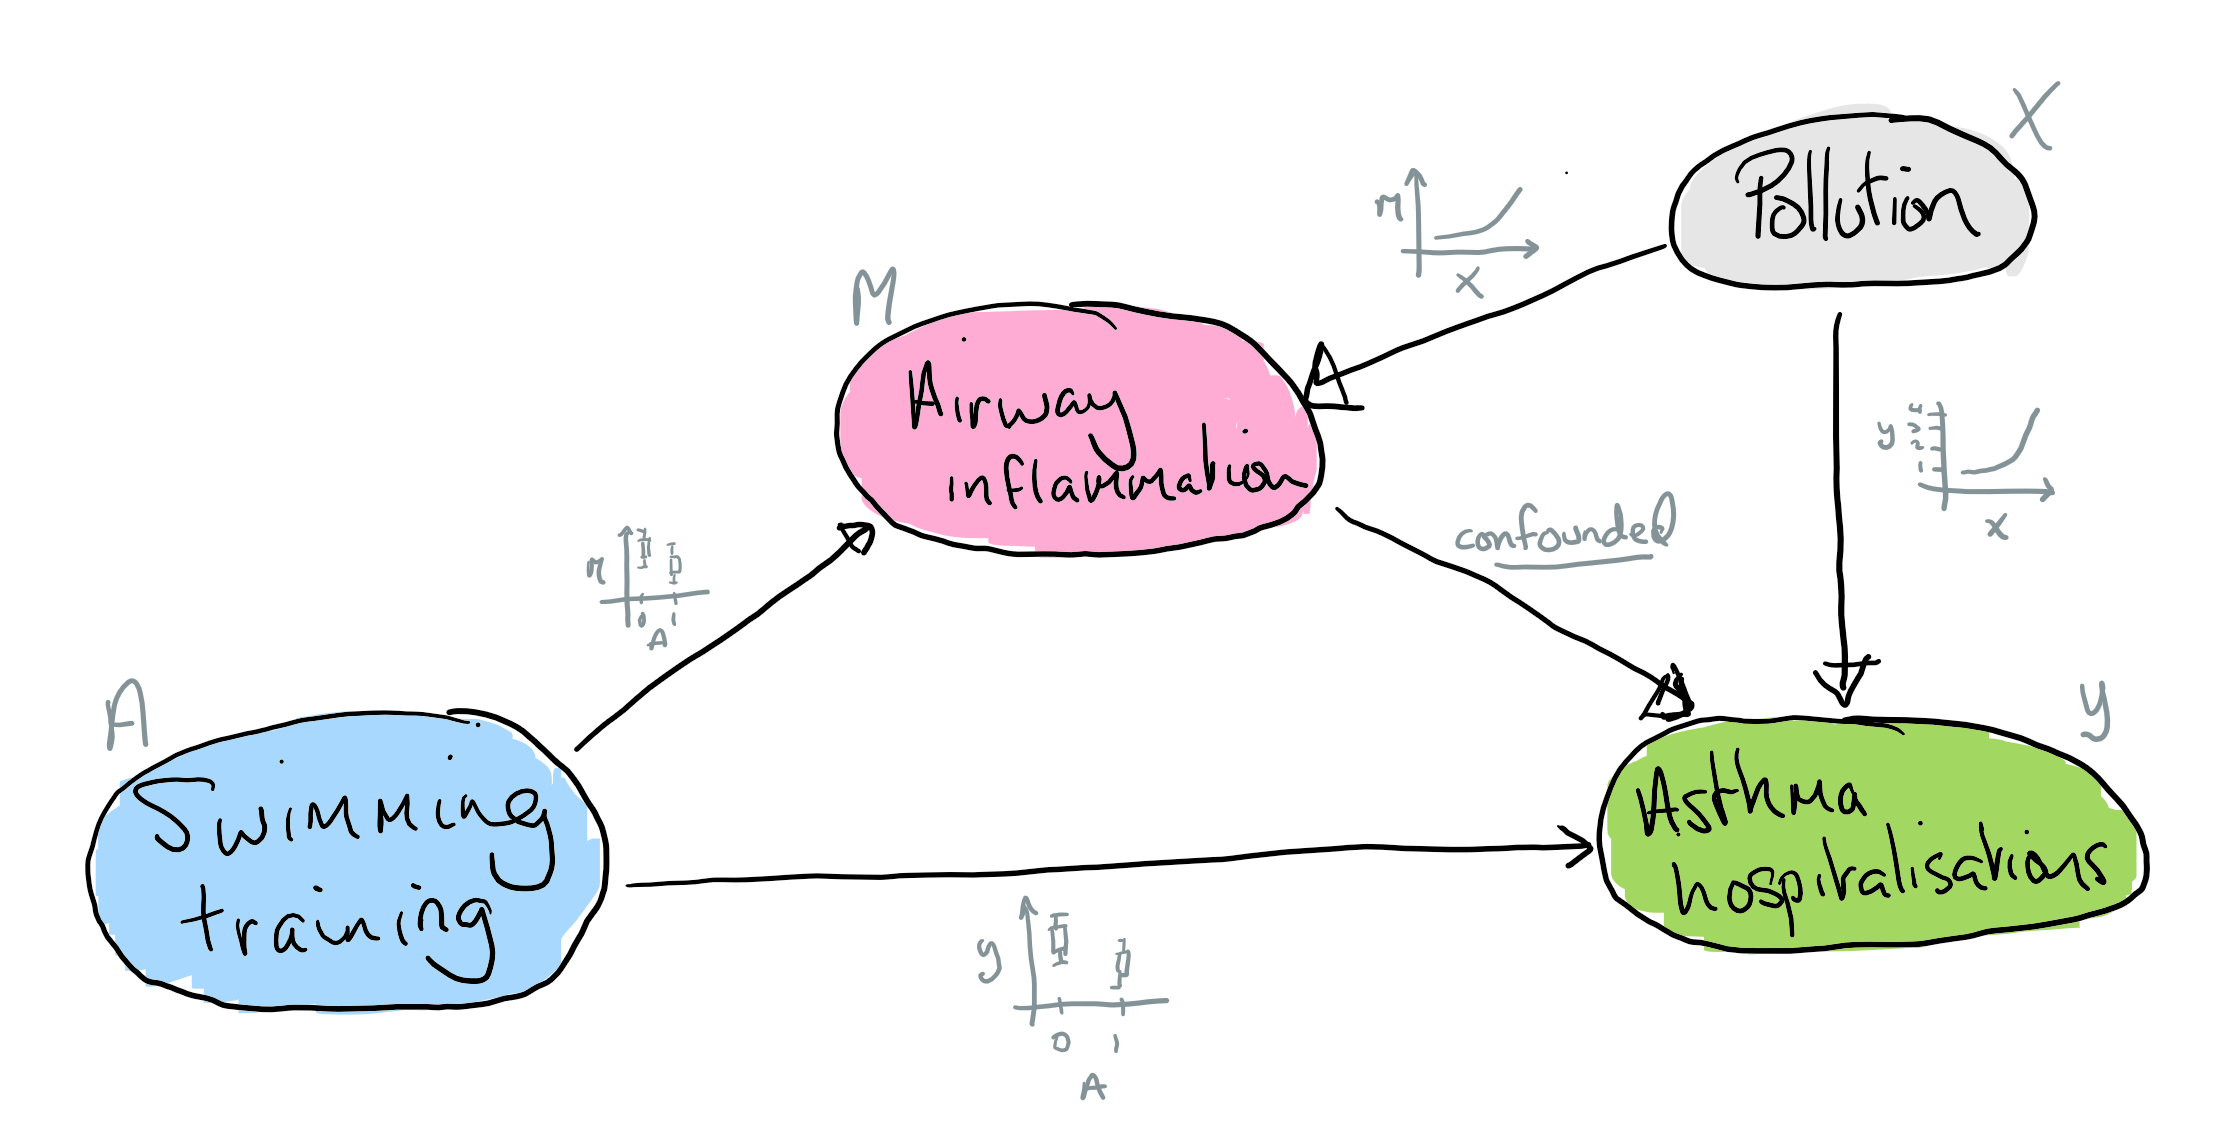 X
Pollution
M
X
M
Airway
inflammation
y
4
3
2
1
x
confounded
M
0 1
A
A
Swimming
training
Y
Asthma
hospitalisations
y
0 1
A